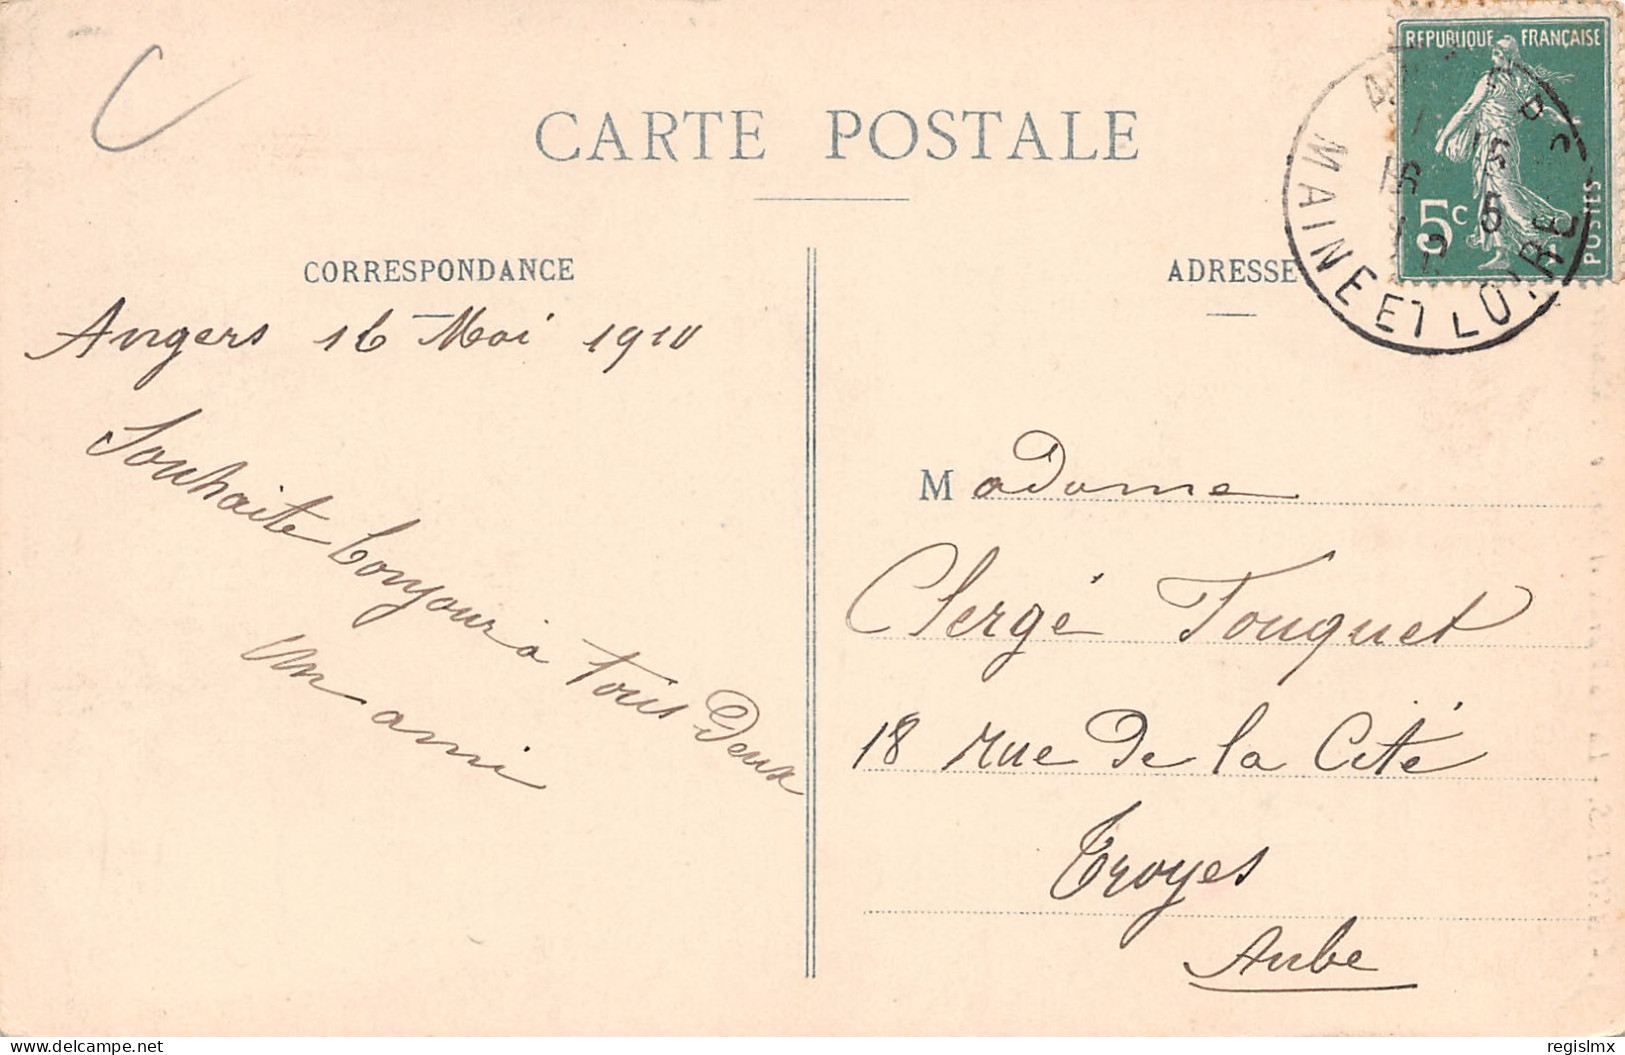 CARTE POSTALE
CORRESPONDANCE
Angers 16 Mai 1910
Souhaite bonjour à
tous Deux
un ami
ADRESSE
REPUBLIQUE FRANÇAISE
5c
POSTES
MAINE ET LOIRE
Madame
Clergé Touquet
18 rue De la Cité
Troyes
Aube
regislmx
delcampe.net